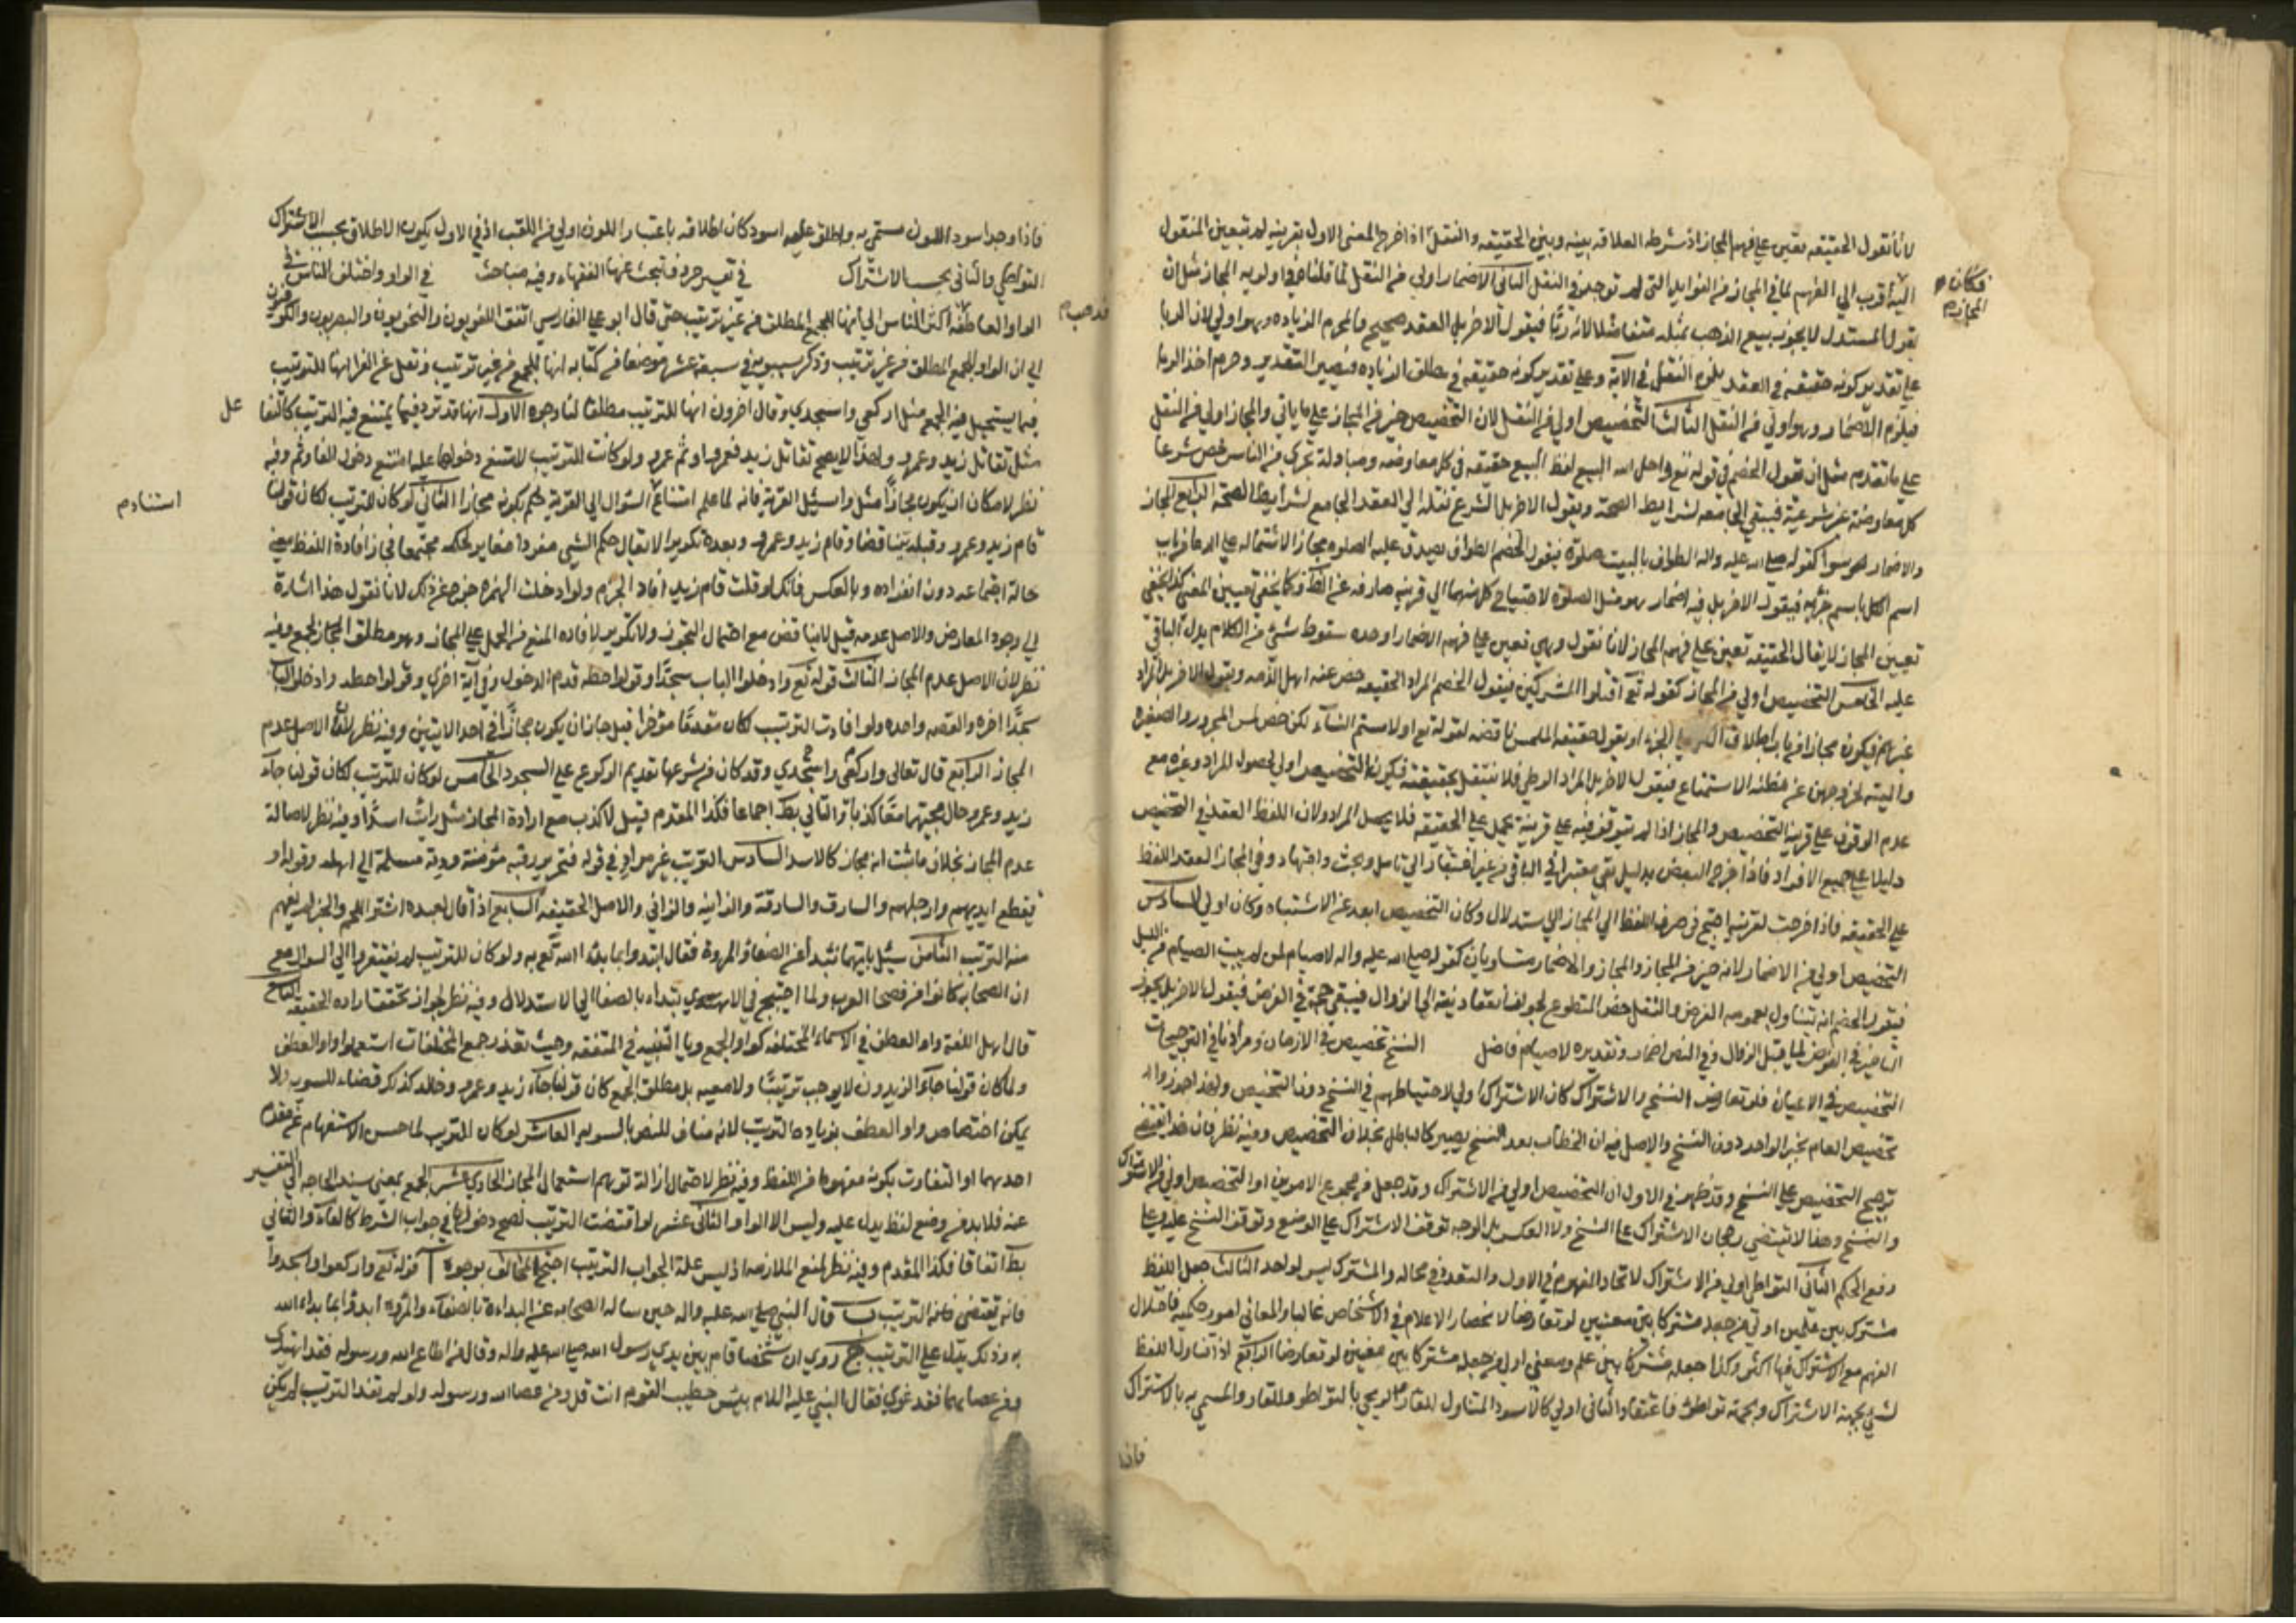 لانا نقول الحقيقه تعين على فهم المجاز اذ شرطه العلاقه بينه وبين الحقيقه والنقل اذا خرج المعنى الاول بقرينه لم تتعين المنقول
اليه اقرب الى الفهم لما في المجاز من الفوايد التى لم توجد في النقل الثانى الاضمار اولى من النقل لما قلناه في اولويه المجاز مثل ان
فكان المجاز م
يقول المستدل لا يجوز بيع الذهب بمثله متفاضلا لانه ربا فيقول الاخر بل العقد صحيح والمحرم الزياده وهو اولى لان الربا
على تقدير كونه حقيقه في العقد يلزم النقل في الآية وعلى تقدير كونه حقيقه في مطلق الزياده فيصير التقدير وحرم اخذ الربا
فيلزم الاضمار وهو اولى من النقل الثالث التخصيص اولى من النقل لان التخصيص خير من المجاز على ما ياتي والمجاز اولى من النقل
على ما تقدم مثل ان يقول الخصم في قوله تع واحل الله البيع لفظ البيع حقيقه في كل معاوضه ومبادلة تجرى بين الناس خص شرعا
كل معاوضة غير شرعية فيبقى الجامعه لشرايط الصحة ويقول الاخر بل الشرع نقله الى العقد الجامع لشرايط الصحة الرابع المجاز
والاضمار سوا كقوله صلى الله عليه واله الطواف بالبيت صلوة فيقول الخصم الطواف يصدق عليه الصلوه مجازا لاشتماله على الدعا من باب
اسم الكل باسم جزئه فيقول الاخر بل فيه اضمار وهو مثل الصلوة لاحتياج كل منهما الى قرينه صارفه عن الظ وكما يخفى تعيين المضمر كذا يخفى
تعيين المجاز لا يقال الحقيقه تعين على فهم المجاز لانا نقول وهي تعين على فهم الاضمار اوحده سقوط شئ من الكلام يدل الباقي
عليه الخامس التخصيص اولى من المجاز كقوله تع اقتلوا المشركين فيقول الخصم المراد الحقيقه خص عنه اهل الذمه ويقول الاخر بل المراد
غيرهم فيكون مجازا من باب اطلاق الجزء او يقول حقيقه الملمس ناقضه لقوله تع او لامستم النساء لكن خص لمس المحرم والصغيرة
والميته لخروجهن عن مظنه الاستمتاع فيقول الاخر بل المراد الوطى فلا ينتقل بحقيقته فيكون التخصيص اولى لحصول المراد وغيره مع
عدم الوقوف على قرينه التخصيص والمجاز اذا لم يتوقف فيه على قرينة يحمل على الحقيقه فلا يحصل المراد ولان اللفظ العقد في التخصيص
دليلا على جميع الافراد فاذا خرج البعض بدليل بقى معتبرا في الباقى من غير افتقار الى تامل وبحث واجتهاد وفي المجاز العقد اللفظ
على الحقيقه فاذا خرجت لقرينه احتيج في صرف اللفظ الى المجاز الى الاستدلال وكان التخصيص ابعد عن الاشتباه وكان اولى السادس
التخصيص اولى من الاضمار لانه خير من المجاز والمجاز والاضمار متساويان كقوله صلى الله عليه واله لا صيام لمن لم يبيت الصيام من الليل
فيقول الخصم انه يتناول بعمومه الفرض والنفل خص المتطوع لجواز انعقاد نيته الى الزوال فيبقى حجة في الفرض فيقول الاخر بل يجوز
التاخير في الفرض الى ما قبل الزوال وفي النص اضمار وتقديره لا صيام فاضل النسخ تخصيص في الازمان ومرادنا في الترجيحات
التخصيص في الاعيان فلو تعارض النسخ والاشتراك كان الاشتراك اولى لاحتياطهم في النسخ دون التخصيص ولهذا جوزوا
تخصيص العام بخبر الواحد دون النسخ والاصل فيه ان الخطاب بعد النسخ يصير كالباطل بخلاف التخصيص وفيه نظر فان هذا يقتضى
ترجيح التخصيص على النسخ وقد ظهر في الاول ان التخصيص اولى من الاشتراك وقد جعل من مجموع الامرين اولا التخصيص اولى من الاشتراك
والنسخ وهذا لا يقتضى رجحان الاشتراك على النسخ ولا العكس بل الوجه توقف الاشتراك على الوضع وتوقف النسخ عليه وعلى
رفع الحكم الثانى التواطى اولى من الاشتراك لاتحاد المفهوم في الاول والتعدد في محاله والمشترك ليس لواحد الثالث جعل اللفظ
مشترك بين علمين اولى من جعله مشتركا بين معنيين لو تعارضا لانحصار الاعلام في الاشخاص غالبا والمعانى امور حكميه فاختلال
الفهم مع الاشتراك فيها اكثر وكذا جعله مشتركا بين علم ومعنى اولى من جعله مشتركا بين معنيين لو تعارضا الرابع اذا تناول اللفظ
لشئ بجهة الاشتراك وبجهة تواطئه فاعتقاد الثانى اولى كالاسود المتناول للقار والزنجي بالتواطو وللقار والمسمى به بالاشتراك
فاذا
فاذا وجد اسود اللون مسمى به واطلق عليه اسود كان اطلاقه باعتبار اللون اولى من اللقب اذ في الاول يكون الاطلاق بحسب الاشتراك
التواطى والثانى بحسب الاشتراك في تفسير حروف تبحث عنها الفقهاء وفيه مباحث في الواو واختلف الناس في
الواو العاطفة اكثر الناس الى انها للجمع المطلق من غير ترتيب حتى قال ابو على الفارسى اتفق اللغويون والنحويون والبصريون والكوفيون
فذهب م
الى ان الواو للجمع المطلق من غير ترتيب وذكر سيبويه في سبعة عشر موضعا من كتابه انها للجمع من غير ترتيب ونقل عن الفرا انها للترتيب
فيما يستحيل فيه الجمع مثل اركعى واسجدي وقال اخرون انها للترتيب مطلقا لنا وجوه الاول انها قد ترد فيما يمتنع فيه الترتيب كالتفا عل
مثل تقاتل زيد وعمرو ولهذا لا يصح تقاتل زيد فعمرو او ثم عمرو ولو كانت للترتيب لامتنع دخولها عليه امتنع دخول الفا وثم وفيه
نظر لامكان ان يكون مجازا مثل واسئل القرية فانه لما علم امتناع السؤال الى القرية حكم بكونه مجازا الثانى لو كان للترتيب لكان قولنا
استناد م
قام زيد وعمرو وقبله تناقضا وقام زيد وعمرو وبعده تكريرا لا يقال حكم الشئ مفردا مغاير لحكمه مجتمعا فجاز افادة اللفظ معنى
حالة اجتماعه دون انفراده وبالعكس فانك لو قلت قام زيد افاد الجزم ولو ادخلت الهمزه خرج عن ذلك لانا نقول هذا اشارة
الى وجود المعارض والاصل عدمه قيل لا يتناقض مع احتمال التجوز ولا تكرير لافاده المنع من الحمل على المجاز وهو مطلق المجاز للجمع وفيه
نظر لان الاصل عدم المجاز الثالث قوله تع وادخلوا الباب سجدا وقولوا حطه قدم الدخول وفي آية اخرى وقولوا حطه وادخلوا الباب
سجدا اخره والقصه واحده ولو افادت الترتيب لكان متقدما مؤخرا قيل جاز ان يكون مجازا في احد الايتين وفيه نظر لان الاصل عدم
المجاز الرابع قال تعالى واركعى واسجدي وقد كان من شرعها تقديم الركوع على السجود الخامس لو كان للترتيب لكان قولنا جاء
زيد وعمرو حال مجيئهما معا كذبا والتالي بط اجماعا فكذا المقدم قيل لا كذب مع ارادة المجاز مثل رايت اسدا وفيه نظر لاصالة
عدم المجاز بخلاف ما ثبت انه مجاز كالاسد السادس الترتيب غير مراد في قوله فتحرير رقبه مؤمنة ودية مسلمة الى اهله وقوله او
تقطع ايديهم وارجلهم والسارق والسارقة والزانيه والزاني والاصل الحقيقه السابع اذا قال لعبده اشتر اللحم والخبز لم يفهم
منه الترتيب الثامن سئل بايتهما نبدأ عن الصفا والمروة فقال ابتدوا بما بدء الله تع به ولو كان للترتيب لم يفتقروا الى السوال مع
ان الصحابه كانوا من فصحا العرب ولما احتيج في الابتداء بالصفا الى الاستدلال وفيه نظر لجواز تحقق اراده الحقيقه التاسع
قال اهل اللغة واو العطف في الاسماء المختلفه كواو الجمع ويا التثنيه في المتفقه وحيث تعذر جمع المختلفات استعملوا واو العطف
ولما كان قولنا جاء الزيدون لا يوجب ترتيبا ولا معيه بل مطلق الجمع كان قولنا جاء زيد وعمرو وخالد كذلك قضاء للسويه ولا
يمكن اختصاص واو العطف بزيادة الترتيب لانه مناف للنص بالسويه العاشر لو كان للترتيب لما حسن الاستفهام عن تقدم
احدهما او التفاوت بكونه مفهوما من اللفظ وفيه نظر لاحتمال ازالة توهم استعمال المجاز الحادي عشر الجمع بمعنى تشتد الحاجه الى التعبير
عنه فلا بد من وضع لفظ يدل عليه وليس الا الواو الثانى عشر لو اقتضت الترتيب لصح دخولها في جواب الشرط كالفاء والتالى
بط اتفاقا فكذا المقدم وفيه نظر لمنع الملازمه اذ ليس علة الجواب الترتيب احتج المخالف بوجوه ا قوله تع واركعوا واسجدوا
فانه يقتضى فانه الترتيب ب قال النبي صلى الله عليه واله حين ساله الصحابه عن البداءة بالصفا والمروه ابدؤا بما بداء الله
به وذلك يدل على الترتيب ج روي ان شخصا قام بين يدي رسول الله صلى الله عليه واله وقال من اطاع الله ورسوله فقد اهتدى
ومن عصاهما فقد غوى فقال النبي عليه السلام بئس خطيب القوم انت قل ومن عصا الله ورسوله ولو لم تفد الترتيب لم يكن